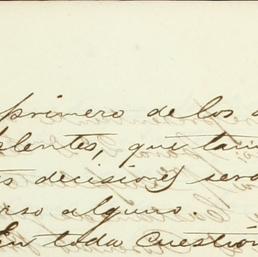 primero de los
plentes, que tam
s decisiones será
rso alguno.
En toda cuestión